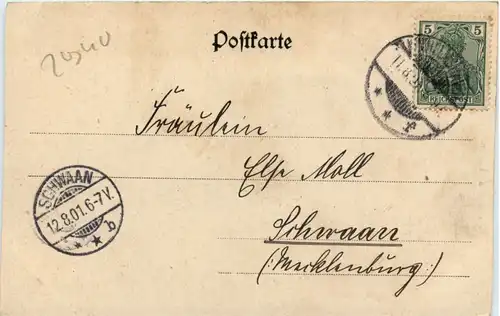 Postkarte
5 5
REICHSPOST
Fräulein
Else Moll
Schwaan
(Mecklenburg)
SCHWAAN
12.8.01.6-7V.
b